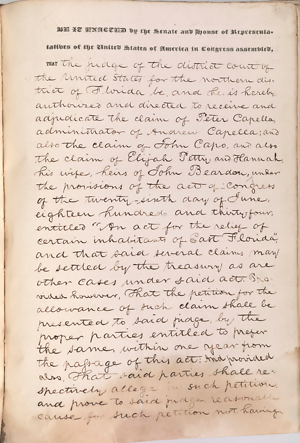 BE IT ENACTED by the Senate and House of Representa-
tatives of the United States of America in Congress assembled,
THAT the judge of the district court of
the United States for the northern dis-
trict of Florida be and he is hereby
authorized and directed to receive and
adjudicate the claim of Peter Capella,
administrator of Andrew Capella; and
also the claim of John Capo, and also
the claim of Elijah Petty, and Hannah,
his wife, heirs of John Beardon, under
the provisions of the act of Congress
of the twenty-sixth day of June,
eighteen hundred and thirty-four,
entitled "An act for the relief of
certain inhabitants of East Florida,"
and that said several claims may
be settled by the treasury as are
other cases under said act: Pro-
vided however, That the petition for the
allowance of such claim shall be
presented to said judge, by the
proper parties entitled to prefer
the same, within one year from
the passage of this act: And provided
also, That said parties shall re-
spectively allege in such petition
and prove to said judge reasonable
cause for such petition not having